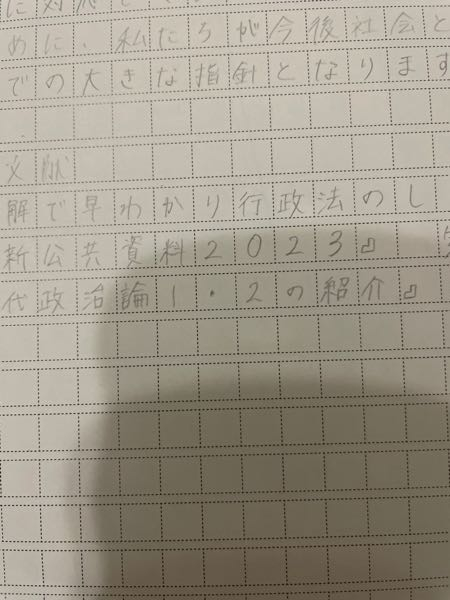 に対応して
めに、私たちが今後社会と
での大きな指針となります
文献
解で早わかり行政法のし
新公共資料2023』
代政治論1・2の紹介』